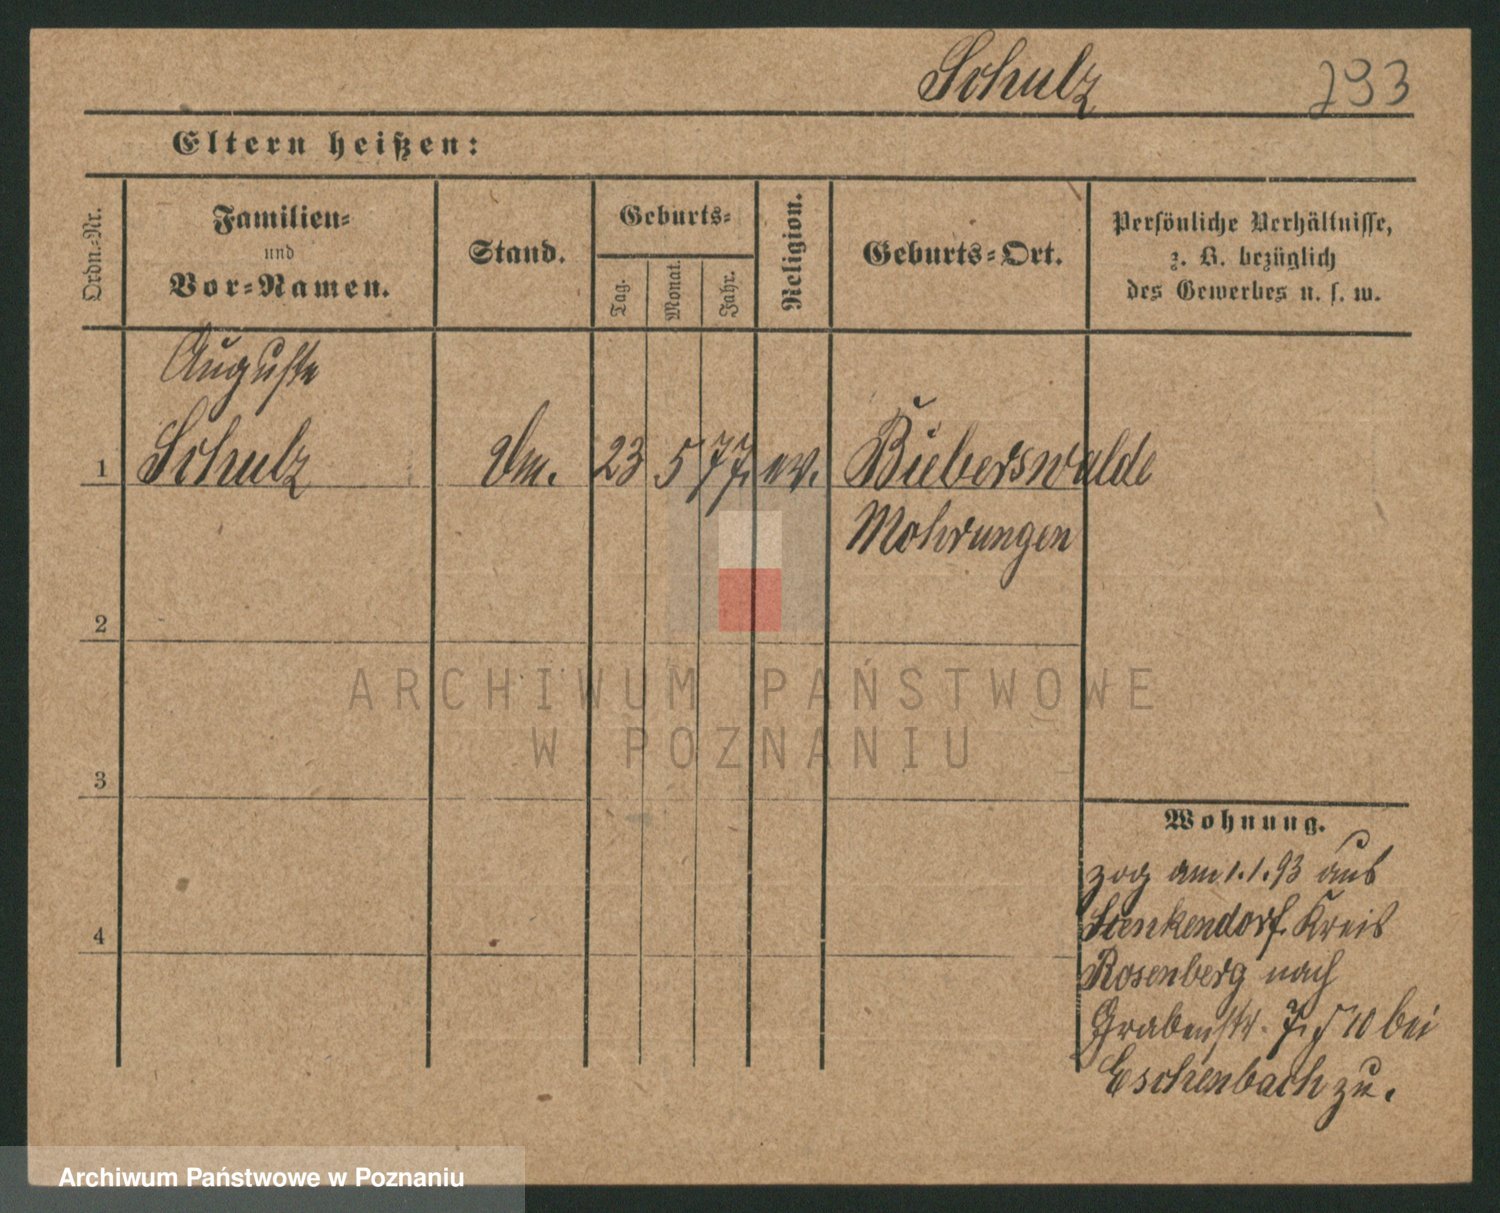 Schulz 293
Eltern heißen:
Ordn.-Nr.
Familien-
und
Vor-Namen.
Stand.
Geburts-
Tag.
Monat.
Jahr.
Religion.
Geburts-Ort.
Persönliche Verhältnisse,
z. B. bezüglich
des Gewerbes u. s. w.
Auguste
1 Schulz 23 5 77. ev. Bieberswalde
Mohrungen
2
ARCHIWUM PAŃSTWOWE
W POZNANIU
3
Wohnung.
zog am 1.1.93 aus
Stenkendorf Kreis
4
Rosenberg nach
Grabenstr. 7. 10 bei
Eschenbach zu.
Archiwum Państwowe w Poznaniu